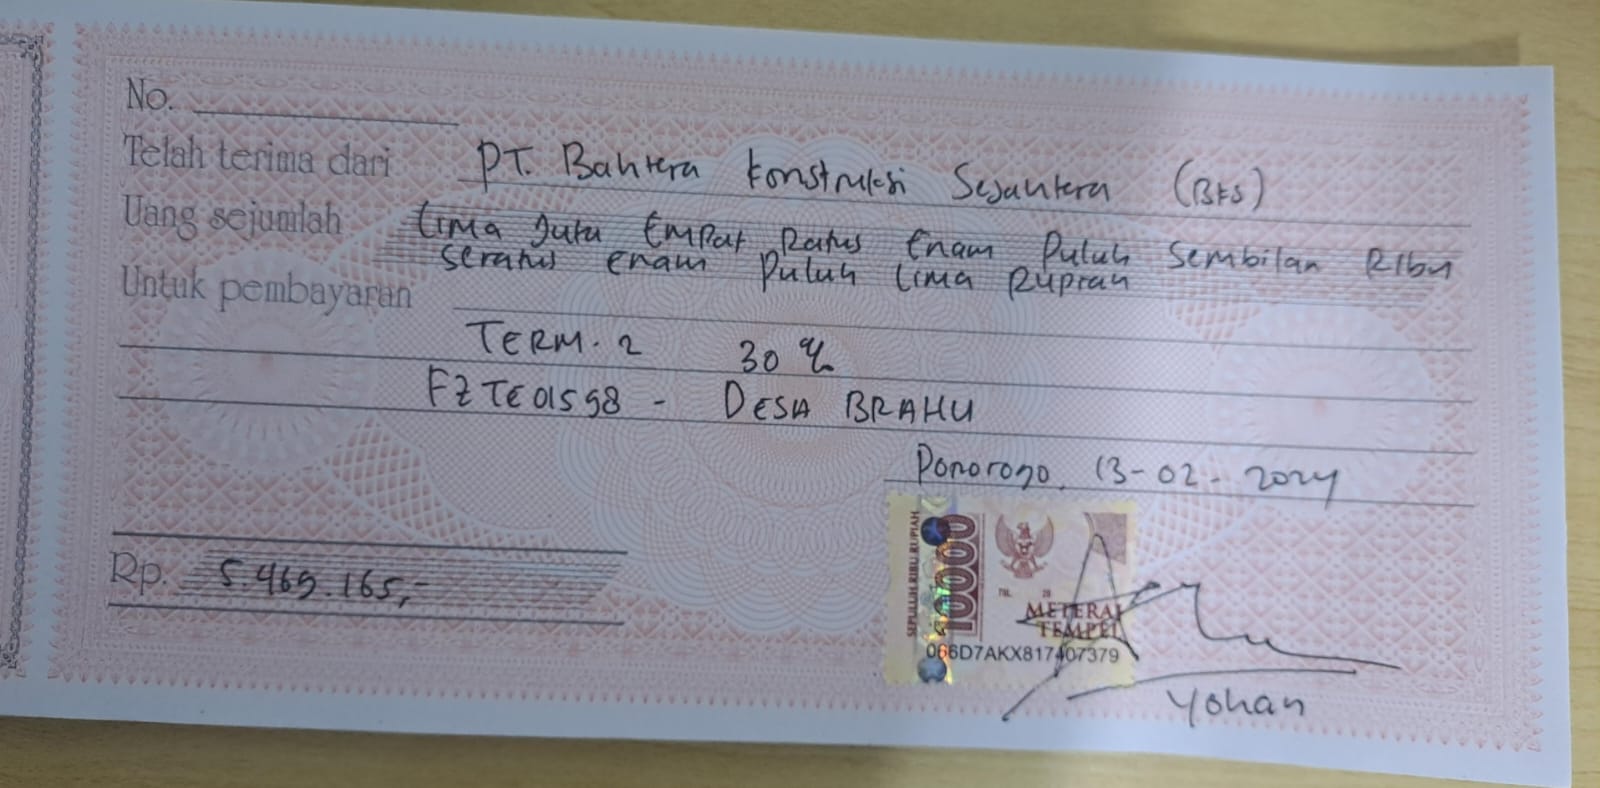 No.
Telah terima dari PT. Bahtera Konstruksi Sejahtera (BKS)
Uang sejumlah Lima Juta Empat Ratus Enam Puluh Sembilan Ribu
Seratus enam Puluh Lima Rupiah
Untuk pembayaran
TERM. 2 30 %
FZTE01598 - DESA BRAHU
Ponorogo, 13-02-2024
Rp. 5.469.165,-
SEPULUH RIBU RUPIAH
10000
TGL. 20
METERAI
TEMPEL
066D7AKX817407379
Yohan